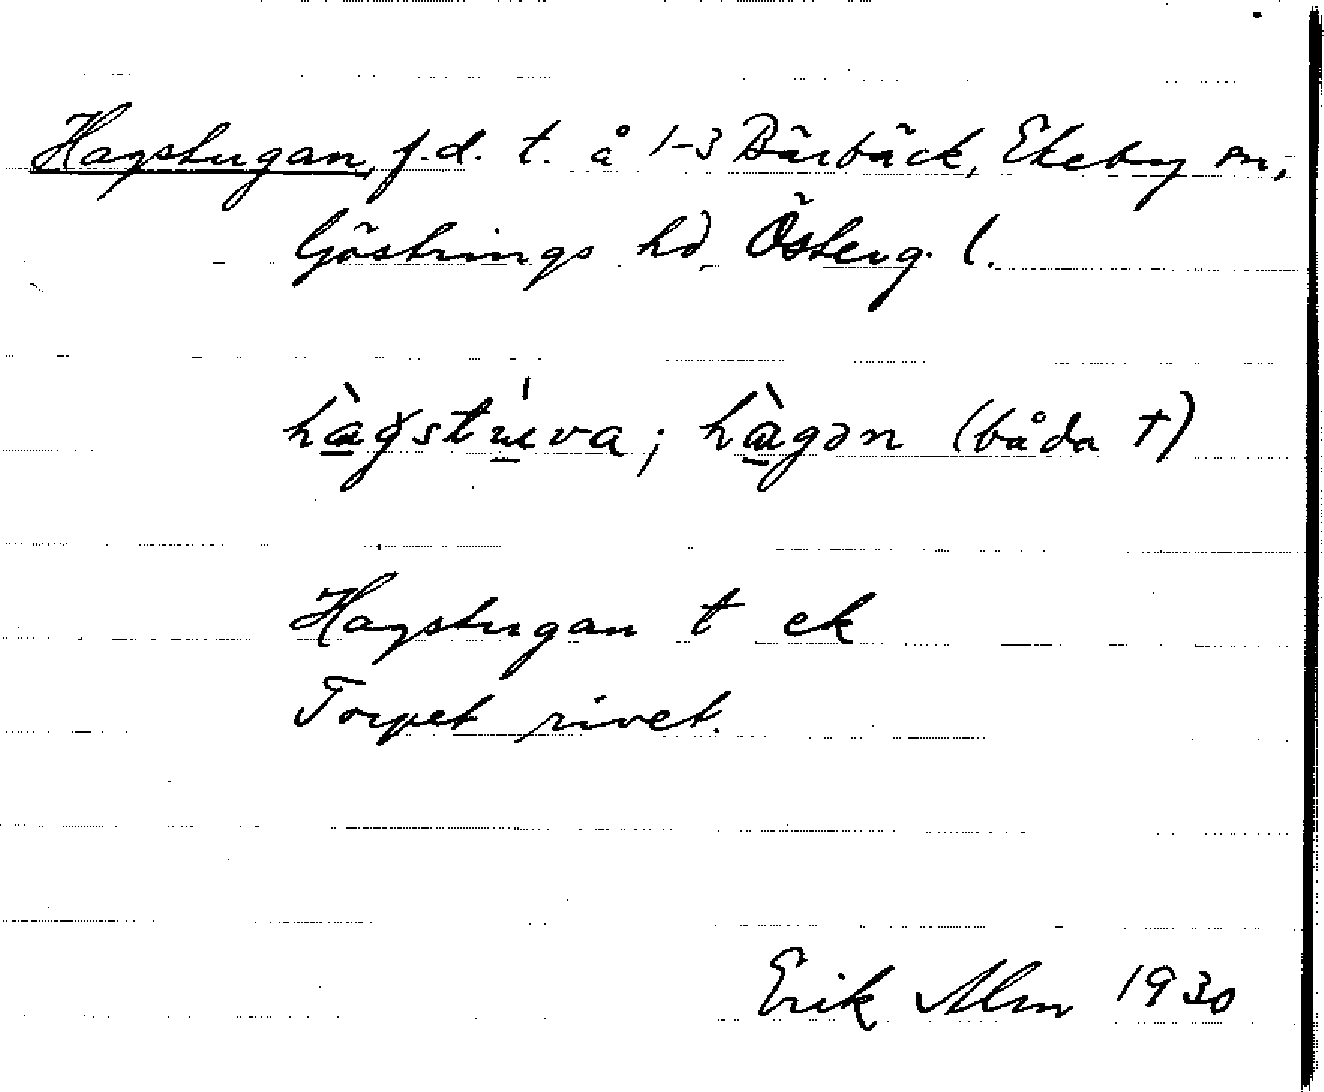 Hagstugan, f.d. t. å 1-3 Bärbäck, Ekeby sn,
Göstrings hd, Österg. l.
hàgstu̍va; hàgən (båda †)
Hagstugan t ek
Torpet rivet.
Erik Alm 1930